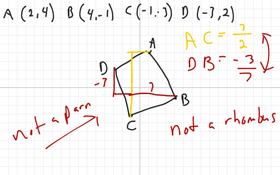 A (2,4) B (4,-1) C (-1,-3) D (-3,2)
AC = 7/2
DB = -3/7
A
D
-3
7
B
C
not a parm
not a rhombus